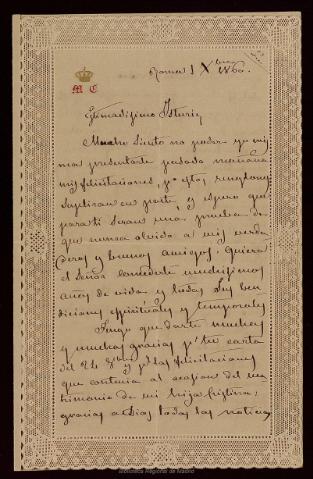 M C
Roma 1 Xbre 1860.
Estimadisimo Isturiz
Mucho siento no poder yo mis
ma presentarte pasado mañana
mis felicitaciones, pº estos renglones
supliran en parte, y espero que
para ti seran una prueba de
que nunca olvido a mis verda
deros y buenos amigos. Quiera
el Señor concederte muchisimos
años de vida y todas sus ben
diciones espirituales y temporales
Tengo que darte muchas
y muchas gracias pr tu carta
del 24 8bre y pr las felicitaciones
que contenia al ocasion del ma
trimonio de mi hija Cristina;
gracias a Dios todas las noticias
Biblioteca Regional de Madrid